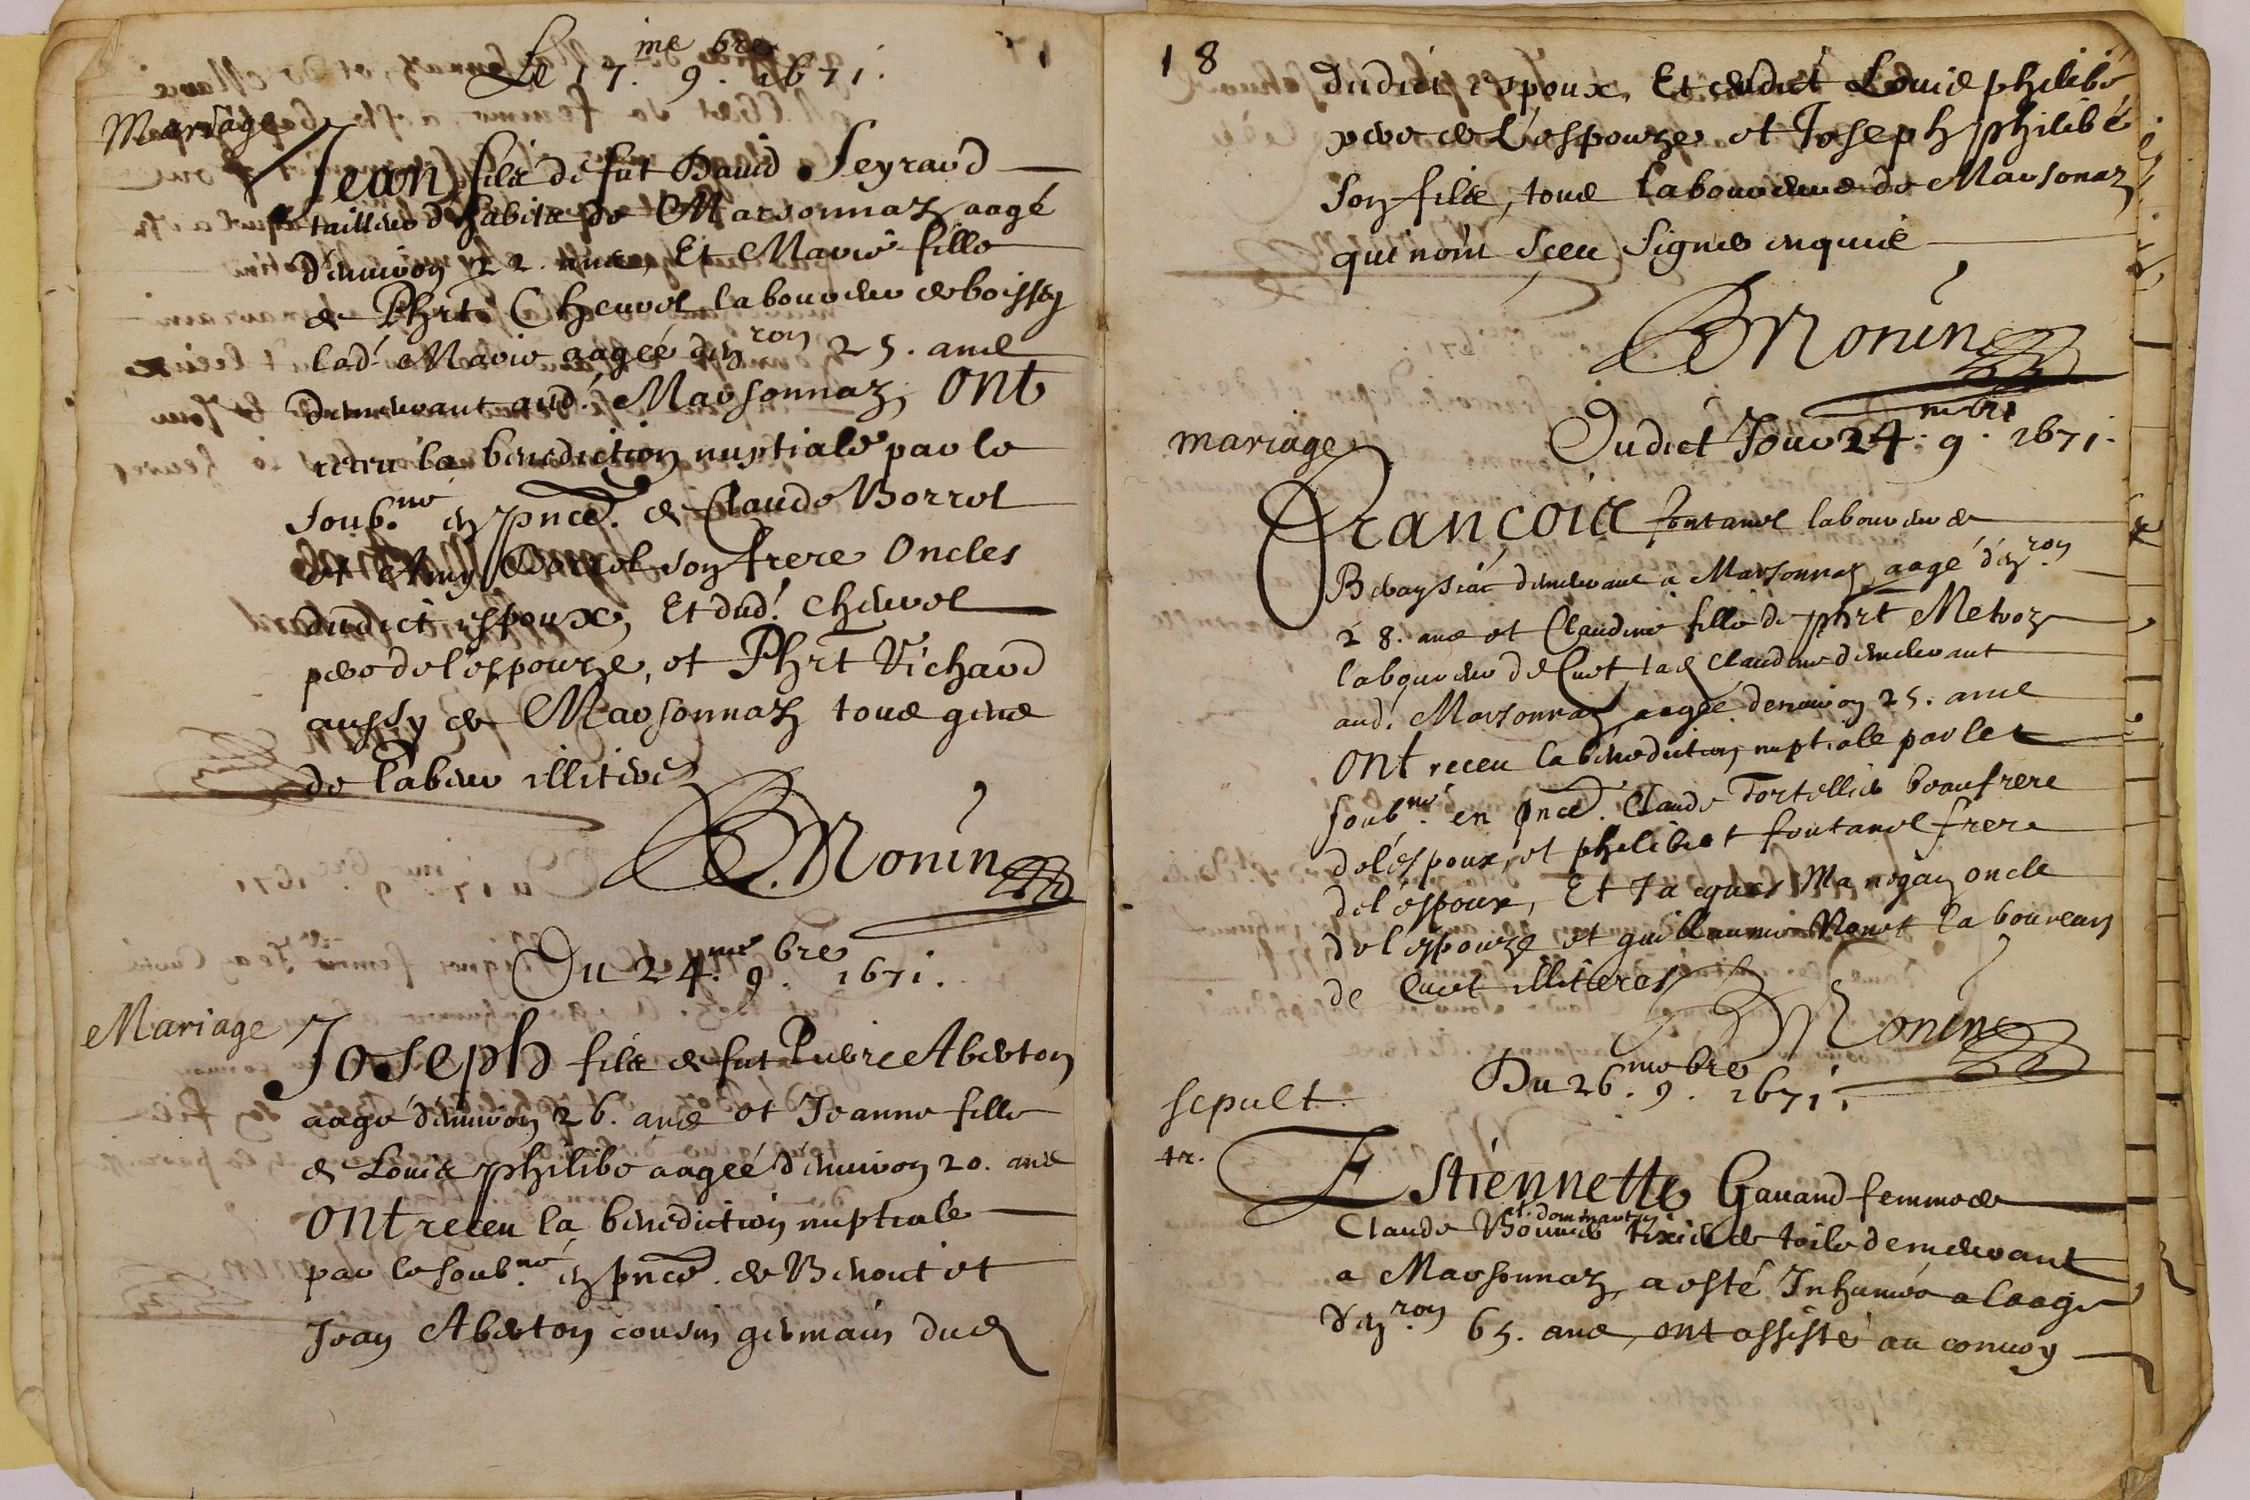 Le 17.me 9.bre 1671.
Mariage
Jean filz de fut David Seyraud
tailleur d'habitz de Marsonnaz aagé
d'enuiron 22. ans, Et Marie fille
de Phrt Cheurel laboureur de boissey
lad. Marie aagée d'en.ron 25. ans
demeurant aud. Marsonnaz, ont
receu la benediction nuptiale par le
soub.né en pnce. de Claude Borrel
et Borrel son frere oncles
dudict espoux, Et dud. cheurel
pere de l'espouze, et Phrt Vichard
aussy de Marsonnaz tous gens
de labeur illiterés
Monin
Du 24.me 9.bre 1671.
Mariage
Joseph filz de fut Pierre Aberton
aagé d'enuiron 26. ans et Jeanne fille
de Louis philibe aagée d'enuiron 20. ans
ont receu la benediction nuptiale
par le soub.né en pnce. de Benoit et
Jean Aberton cousin germain dud
18
dudict espoux, Et dudict Louis philibé
pere de L'espouze et Joseph philibé
son filz, tous laboureurs de Marsonaz
qui n'ont sceu signer enquis
Monin
mariage
Dudict Jour 24.me 9.bre 1671.
Francois fontanel laboureur de
Bereysiat demeurant a Marsonnaz aagé d'en.ron
28. ans et Claudine fille de phrt
laboureur de Cuet, lad Claudine demeurant
aud. Marsonnaz aagée d'enuiron 25. ans
ont receu la benediction nuptiale par le
soub.né en pnce. Claude Tortellier beaufrere
de l'espoux, et philibert fontanel frere
de l'espoux, Et Jacques oncle
de l'espouze et guillaume laboureurs
de Cuet illiteres
Monin
Du 26.me 9.bre 1671.
sepult.
tr.
Estiennette Gauand femme de
Claude tixier de toile demeurant
a Marsonnaz, a esté Inhumée a l'aage
d'en.ron 65. ans, ont assisté au conuoy